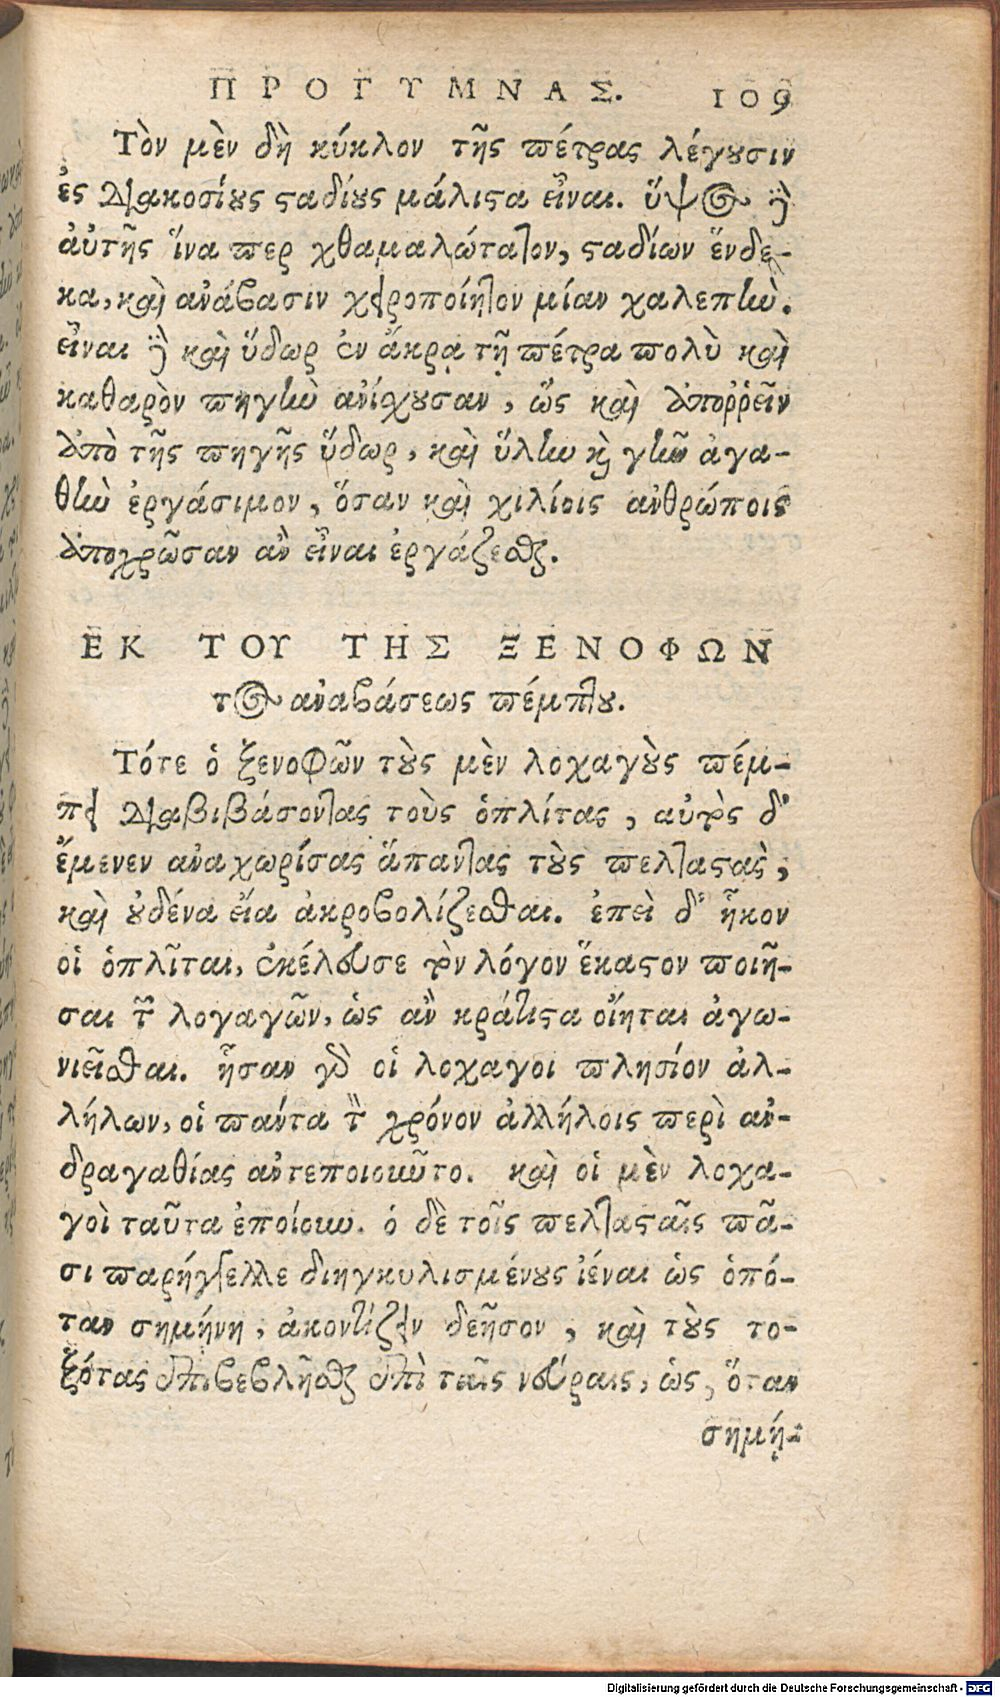 ΠΡΟΓΥΜΝΑΣ. 109
Τὸν μὲν δὴ κύκλον τῆς πέτρας λέγουσιν
ἐς διακοσίους σταδίους μάλιστα εἶναι. ὕψος δὲ
αὐτῆς ἵνα περ χθαμαλώτατον, σταδίων ἕνδε-
κα, καὶ ἀνάβασιν χειροποίητον μίαν χαλεπὴν.
εἶναι δὲ καὶ ὕδωρ ἐν ἄκρᾳ τῇ πέτρᾳ πολὺ καὶ
καθαρὸν πηγὴν ἀνίχουσαν, ὣς καὶ ἀποῤῥεῖν
ἀπὸ τῆς πηγῆς ὕδωρ, καὶ ὕλην καὶ γῆν ἀγα-
θὴν ἐργάσιμον, ὅσαν καὶ χιλίοις ἀνθρώποις
ἀποχρῶσαν ἂν εἶναι ἐργάζεσθαι.
ΕΚ ΤΟΥ ΤΗΣ ΞΕΝΟΦΩΝ
τος ἀναβάσεως πέμπτου.
Τότε ὁ ξενοφῶν τοὺς μὲν λοχαγοὺς πέμ-
πει διαβιβάσοντας τοὺς ὁπλίτας, αὐτὸς δ'
ἔμενεν ἀναχωρίσας ἅπαντας τοὺς πελταστὰς,
καὶ οὐδένα εἴα ἀκροβολίζεσθαι. ἐπεὶ δ' ἧκον
οἱ ὁπλῖται, ἐκέλευσε τὸν λόγον ἕκαστον ποιῆ-
σαι τῶν λογαγῶν, ὡς ἂν κράτιστα οἴηται ἀγω-
νιεῖσθαι. ἦσαν γὰρ οἱ λοχαγοι πλησίον ἀλ-
λήλων, οἱ πάντα τὸν χρόνον ἀλλήλοις περὶ ἀν-
δραγαθίας ἀντεποιοῦντο. καὶ οἱ μὲν λοχα-
γοὶ ταῦτα ἐποίουν. ὁ δὲ τοῖς πελτασταῖς πᾶ-
σι παρήγγελλε διηγκυλισμένους ἰέναι ὡς ὁπό-
ταν σημήνη, ἀκοντίζειν δεῆσον, καὶ τοὺς το-
ξότας ἐπιβεβλῆσθαι ἐπὶ ταῖς νευραις, ὡς, ὅταν
σημή-
Digitalisierung gefördert durch die Deutsche Forschungsgemeinschaft - DFG